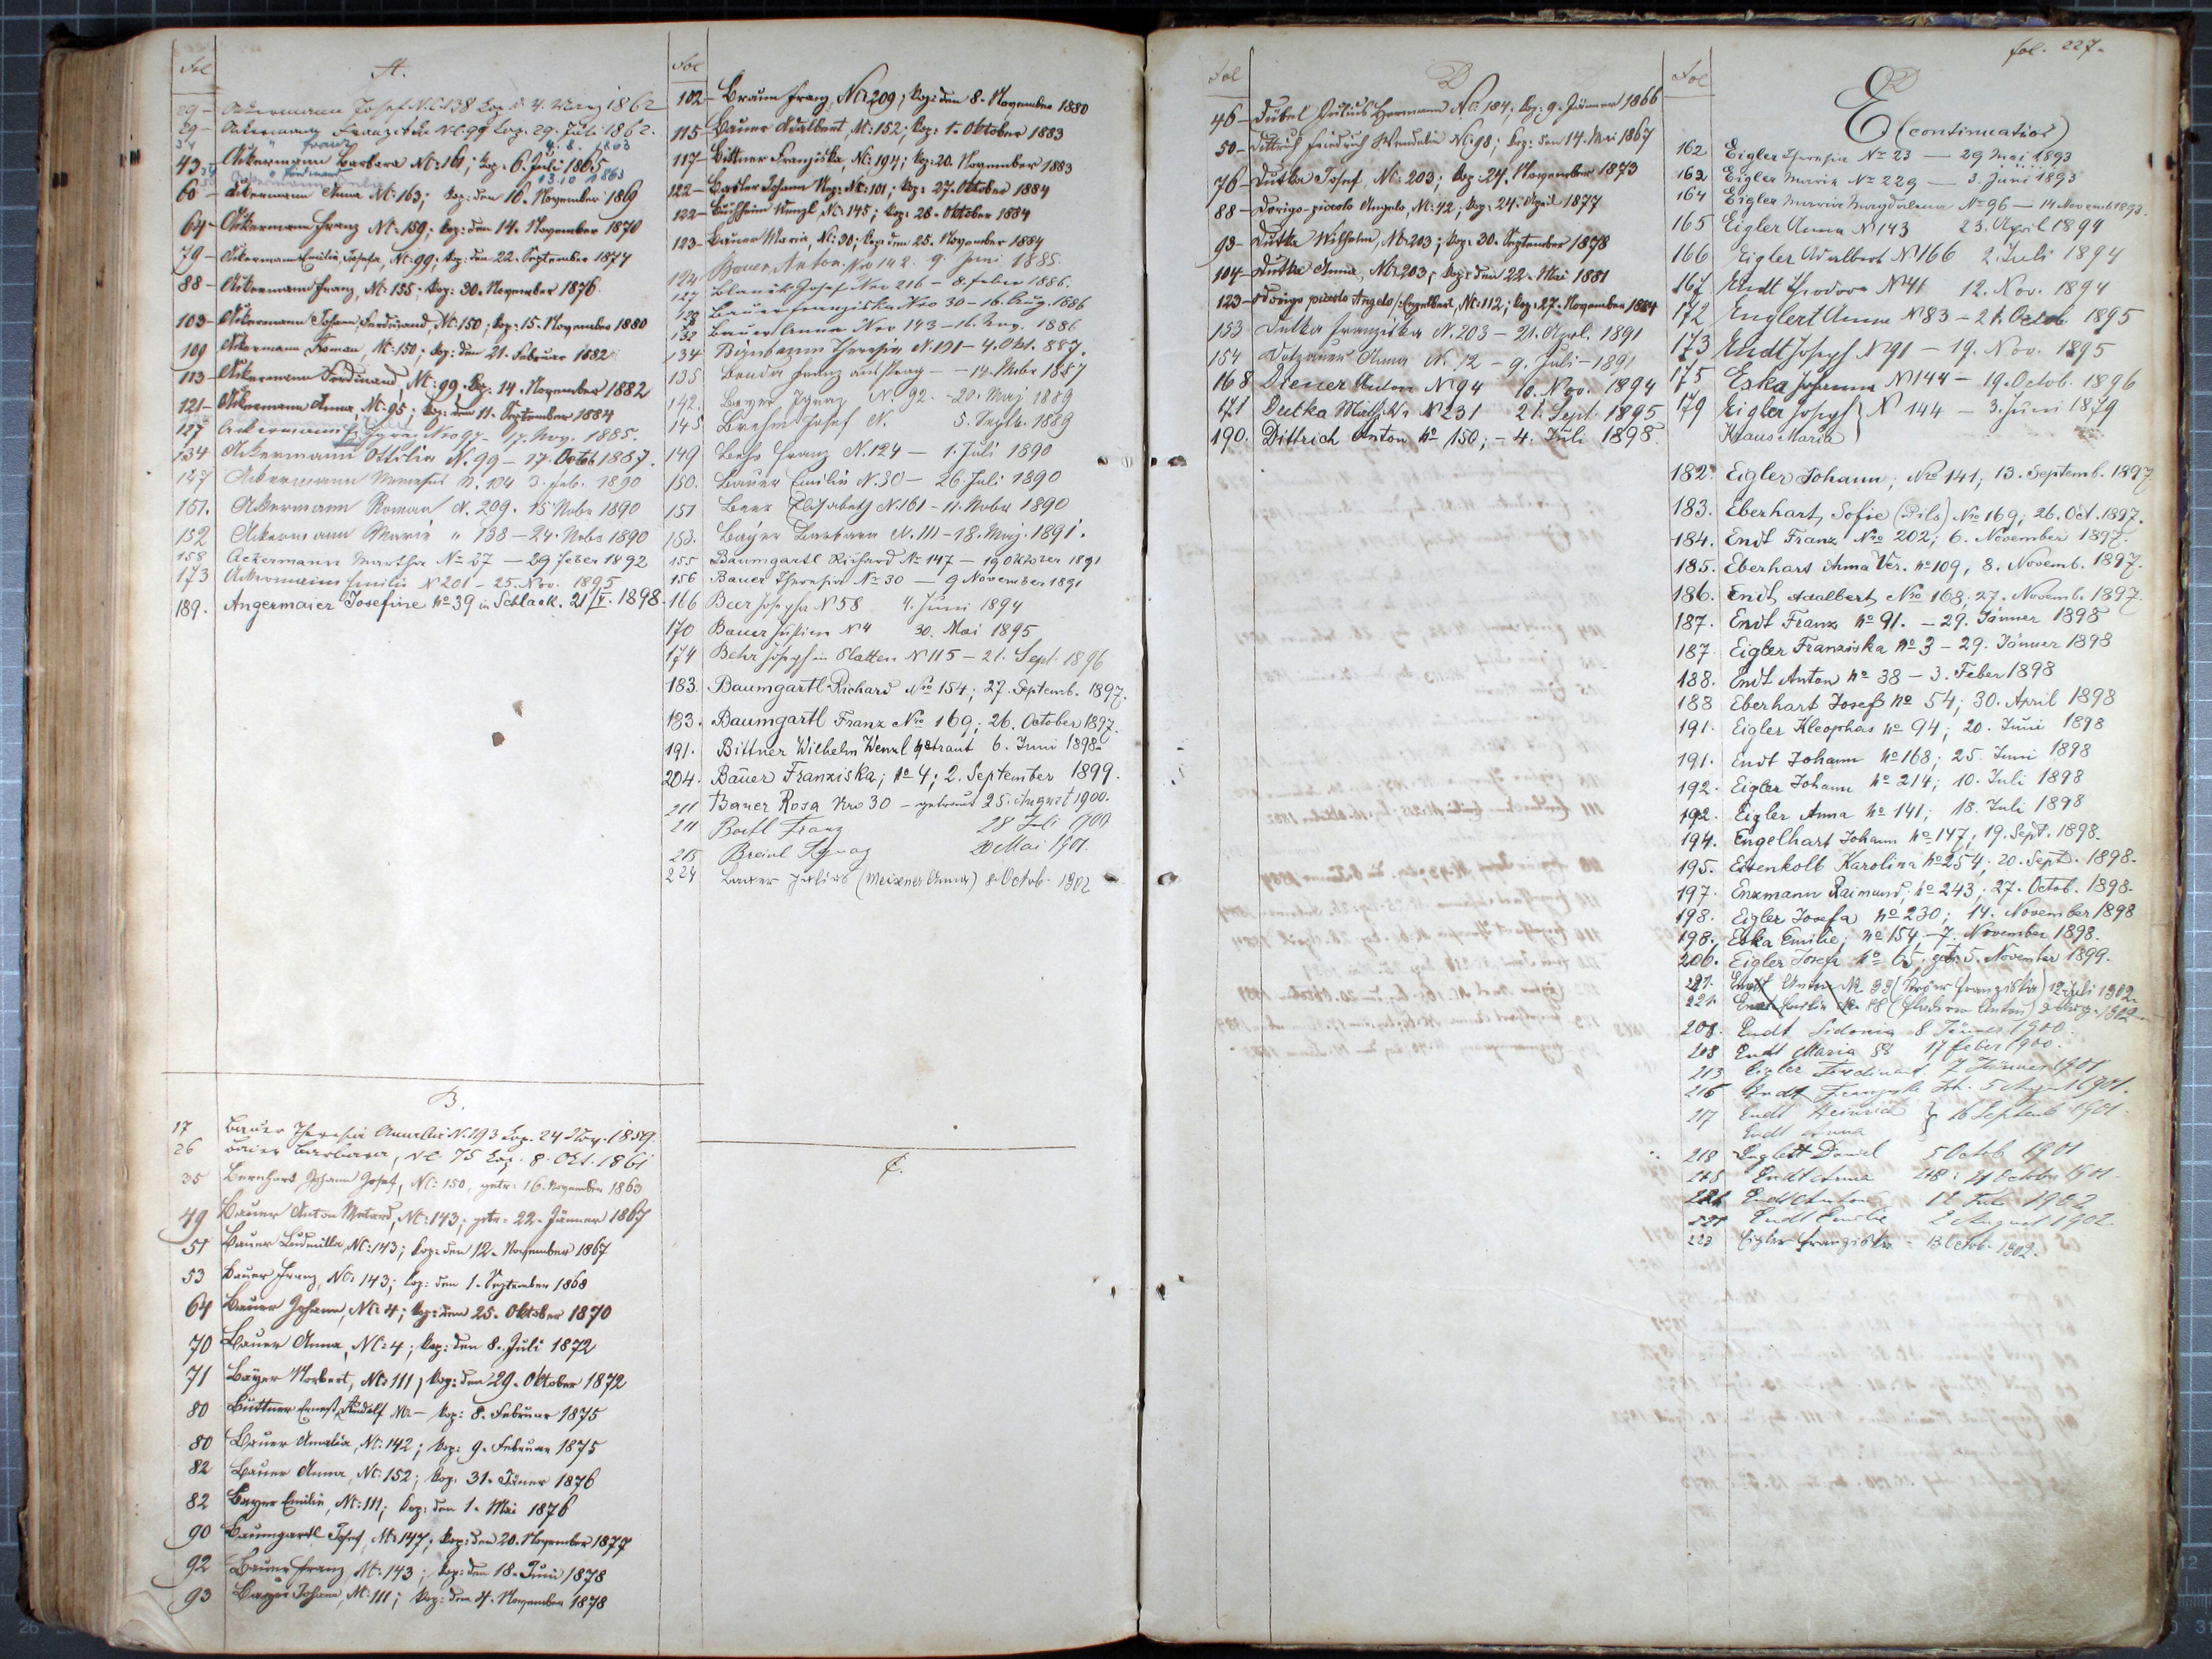 Fol
A.
29 - Ackermann Josef N.C. 138 Kop. d. 4. März 1862
29 - Ackermann Franz NC 99 Kop. 29. Juli 1862.
34 " Franz 4. 8. 1863
43 Ackermann Barbara NC: 161; Kop: 6. Juli 1865
" Ferdinand 13.10 1863
60 - Ackermann Anna NC: 163; Kop: den 16. November 1869
64 - Ackermann Franz NC: 159; Kop: den 14. November 1870
79 - Ackermann Emilie, Josefa, NC: 99; Kop: den 22. September 1874
88 - Ackermann Franz, NC: 135; Kop: 30. November 1876
103 - Ackermann Johann Ferdinand, NC: 150; Kop: 15. November 1880
109 Ackermann Roman, NC: 150; Kop: den 21. Februar 1882
113 - Ackermann Ferdinand, NC: 99, Kop: 14. November 1882
121 - Ackermann Anna, NC: 95; Kop: den 11. September 1884
127 Ackermann Nro 97 - 17. Nov. 1885.
134 Ackermann Ottilia N. 99 - 17. Octob 1887.
147 Ackermann N. 104 3. Feb. 1890
151. Ackermann Roman N. 209. 15 Nobr 1890
152 Ackermann Marie " 138 - 24. Nobr 1890
158 Ackermann Martha No 27 - 29 Feber 1892
173 Ackermann Emilie N 201 - 25. Nov. 1895
189. Angermaier Josefine No 39 in Schlack. 21/V. 1898
B.
17 Bauer Theresia N. 193 Kop. 24 Nov. 1859.
26 Baier Barbara, NC. 75 Kop. 8. Okt. 1861
35 Bernhart Johann Josef, NC: 150, getr: 16. November 1863
49 Bauer Anton Medard, NC: 143; getr: 22. Jänner 1867
51 Bauer Ludmilla, NC: 143; Kop: den 12. November 1867
53 Bauer Franz, NC: 143; Kop: den 1. September 1868
64 Bauer Johann, NC: 4; Kop: den 25. Oktober 1870
70 Bauer Anna, NC: 4; Kop: den 8. Juli 1872
71 Bayer Norbert, NC: 111; Kop: den 29. Oktober 1872
80 Büttner Ernest Rudolf NC - Kop: 8. Februar 1875
80 Bauer Amalia, NC: 142; Kop: 9. Februar 1875
82 Bauer Anna, NC: 152; Kop. 31. Jäner 1876
82 Bayer Emilie, NC: 111; Kop: den 1. Mai 1876
90 Baumgartl Josef, NC: 147; Kop: den 20. November 1877
92 Bauer Franz, NC: 143; Kop: den 18. Juni 1878
93 Bayer Johann, NC: 111; Kop: den 4. November 1878
Fol
102 - Braun Franz, NC: 209; Kop: den 8. November 1880
115 - Bauer Adalbert, NC: 152; Kop: 1. Oktober 1883
117 - Bittner Franziska, NC: 194; Kop: 20. November 1883
122 - Bartler Johann Nep: NC: 101; Kop: 27. Oktober 1884
122 - Buchheim Wenzl, NC: 145; Kop: 28. Oktober 1884
123 - Bauer Maria, NC: 30; Kop: den 25. November 1884
124 Bauer Anton. Nro 142. 9. Juni 1885.
127 Josef Nro 216 - 8. Feber 1886.
129 Bauer Franziska Nro 30 - 16. Aug. 1886
132 Bauer Anna Nro 143 - 16. Nov. 1886
134 Theresia N. 191 - 4. Okt. 887.
135 Benda Franz aus Prag - - 14. Nobr 1887
142. Beyer Ignaz N 92. - 20. Maj 1889
145 Brehm Josef N. 5. Septb. 1889
149 Franz N. 124 - 1. Juli 1890
150. Bauer Emilie N. 30 - 26. Juli 1890
151 Beer Elisabeth N. 161 - 11. Nobr 1890
153. Bayer Barbara N. 111 - 18. Maj. 1891.
155 Baumgartl Richard No 147 - 19 Oktober 1891
156 Bauer Theresia No 30 - 9 November 1891
166 Beer Josepha N 58 4. Juni 1894
170 Bauer Julian N 4 30. Mai 1895
174 Behr Joseph in Platten N 115 - 21. Sept. 1896
183. Baumgartl Richard Nro 154; 27. Septemb. 1897.
183. Baumgartl Franz Nro 169; 26. October 1897.
191. Bittner Wilhelm Wenzl getraut 6. Juni 1898.
204. Bauer Franziska; No 4; 2. September 1899.
211 Bauer Rosa Nro 30 - getraut 25. August 1900.
211 Franz 28 Juli 1900
215 Breinl Ignaz 20 Mai 1901.
224 Bauer Julius (Meixner Anna) 8. Octob. 1902
C.
Fol
D
46 - Dübel Julius Hermann NC: 184; Kop: 9. Jänner 1866
50 - Dittrich Friedrich Wendelin NC: 98; Kop: den 14. Mai 1867
76 - Dutka Josef, NC: 203; Kop: 24. November 1873
88 - Dorigo-piccolo Angelo, NC: 42; Kop: 24. April 1877
93 - Dutka Wilhelm, NC: 203; Kop: 30. September 1878
104 - Dutka Anna, NC: 203; Kop: den 22. Mai 1881
123 - Dorigo piccolo Angelo /: Engelbert, NC: 112; Kop: 27. November 1884
153 Dutka Franziska N. 203 - 21. April. 1891
154 Dotzauer Anna N. 12 - 9. Juli - 1891
168 Diener Anton N 94 10. Nov. 1894
171 Dutka Mathilde N 231 21. Sept. 1895
190. Dittrich Anton No 150; - 4. Juli 1898.
fol. 227.
Fol
E (continuatior)
162 Eigler Theresia No 23 - 29 Mai 1893
163 Eigler Maria No 229 - 3. Juni 1893
164 Eigler Maria Magdalena No 96 - 14 Novemb 1893.
165 Eigler Anna N 143 23. April 1894
166 Eigler Adalbert N 166 2. Juli 1894
167. Endt Theodor N 41 12. Nov. 1894
172 Englert Anna N 83 - 21. Octob 1895
173 Endt Joseph N 91 - 19. Nov. 1895
175 Eska Johanna N 144 - 19. Octob. 1896
179 Eigler Joseph } N 144 - 3. Juni 1879
Kraus Maria
182. Eigler Johann; Nro 141; 13. Septemb. 1897
183. Eberhart Sofie (Pilo) Nro 169; 26. Oct. 1897.
184. Endt Franz Nro 202; 6. November 1897.
185. Eberhart Anna Ver. No 109, 8. Novemb. 1897.
186. Endt Adalbert Nro 168; 27. Novemb. 1897.
187. Endt Franz No 91. - 29. Jänner 1898
187. Eigler Franziska No 3 - 29. Jänner 1898
188. Endt Anton No 38 - 3. Feber 1898
188 Eberhart Josef No 54; 30. April 1898
191. Eigler Kleophas No 94; 20. Juni 1898
191. Endt Johann No 168; 25. Juni 1898
192. Eigler Johann No 214; 10. Juli 1898
192. Eigler Anna No 141; 18. Juli 1898
194. Engelhart Johann No 147; 19. Sept. 1898.
195. Essenkolb Karolina No 254; 20. Sept. 1898.
197. Enzmann Raimund; No 243; 27. Octob. 1898.
198. Eigler Josefa No 230; 14. November 1898
198. Eska Emilie; No 154 - 7. November 1898.
206. Eigler Josefa No 65; getr. 5. November 1899.
221. Endt Anton No 99 (Franziska) 12 Juli 1902.
221. Endt No 88 (Anton) 2 Aug. 1902
208. Endt Sidonia 8 Jänner 1900.
208 Endt Maria 88 17 Feber 1900.
213 Eigler Ferdinand 7 Jänner 1901
216 Endt 5 August 1901.
217 Endt Heinrich } 16 Septemb 1901
Endt Anna
218 Englert Daniel 5 Octob 1901
218 Endt Anna 248: 21 October 1901.
221 Endt Anton 12 Juli 1902
221 Endt Emilie 2 August 1902
223 Eigler Franziska - 13 Octob. 1902.